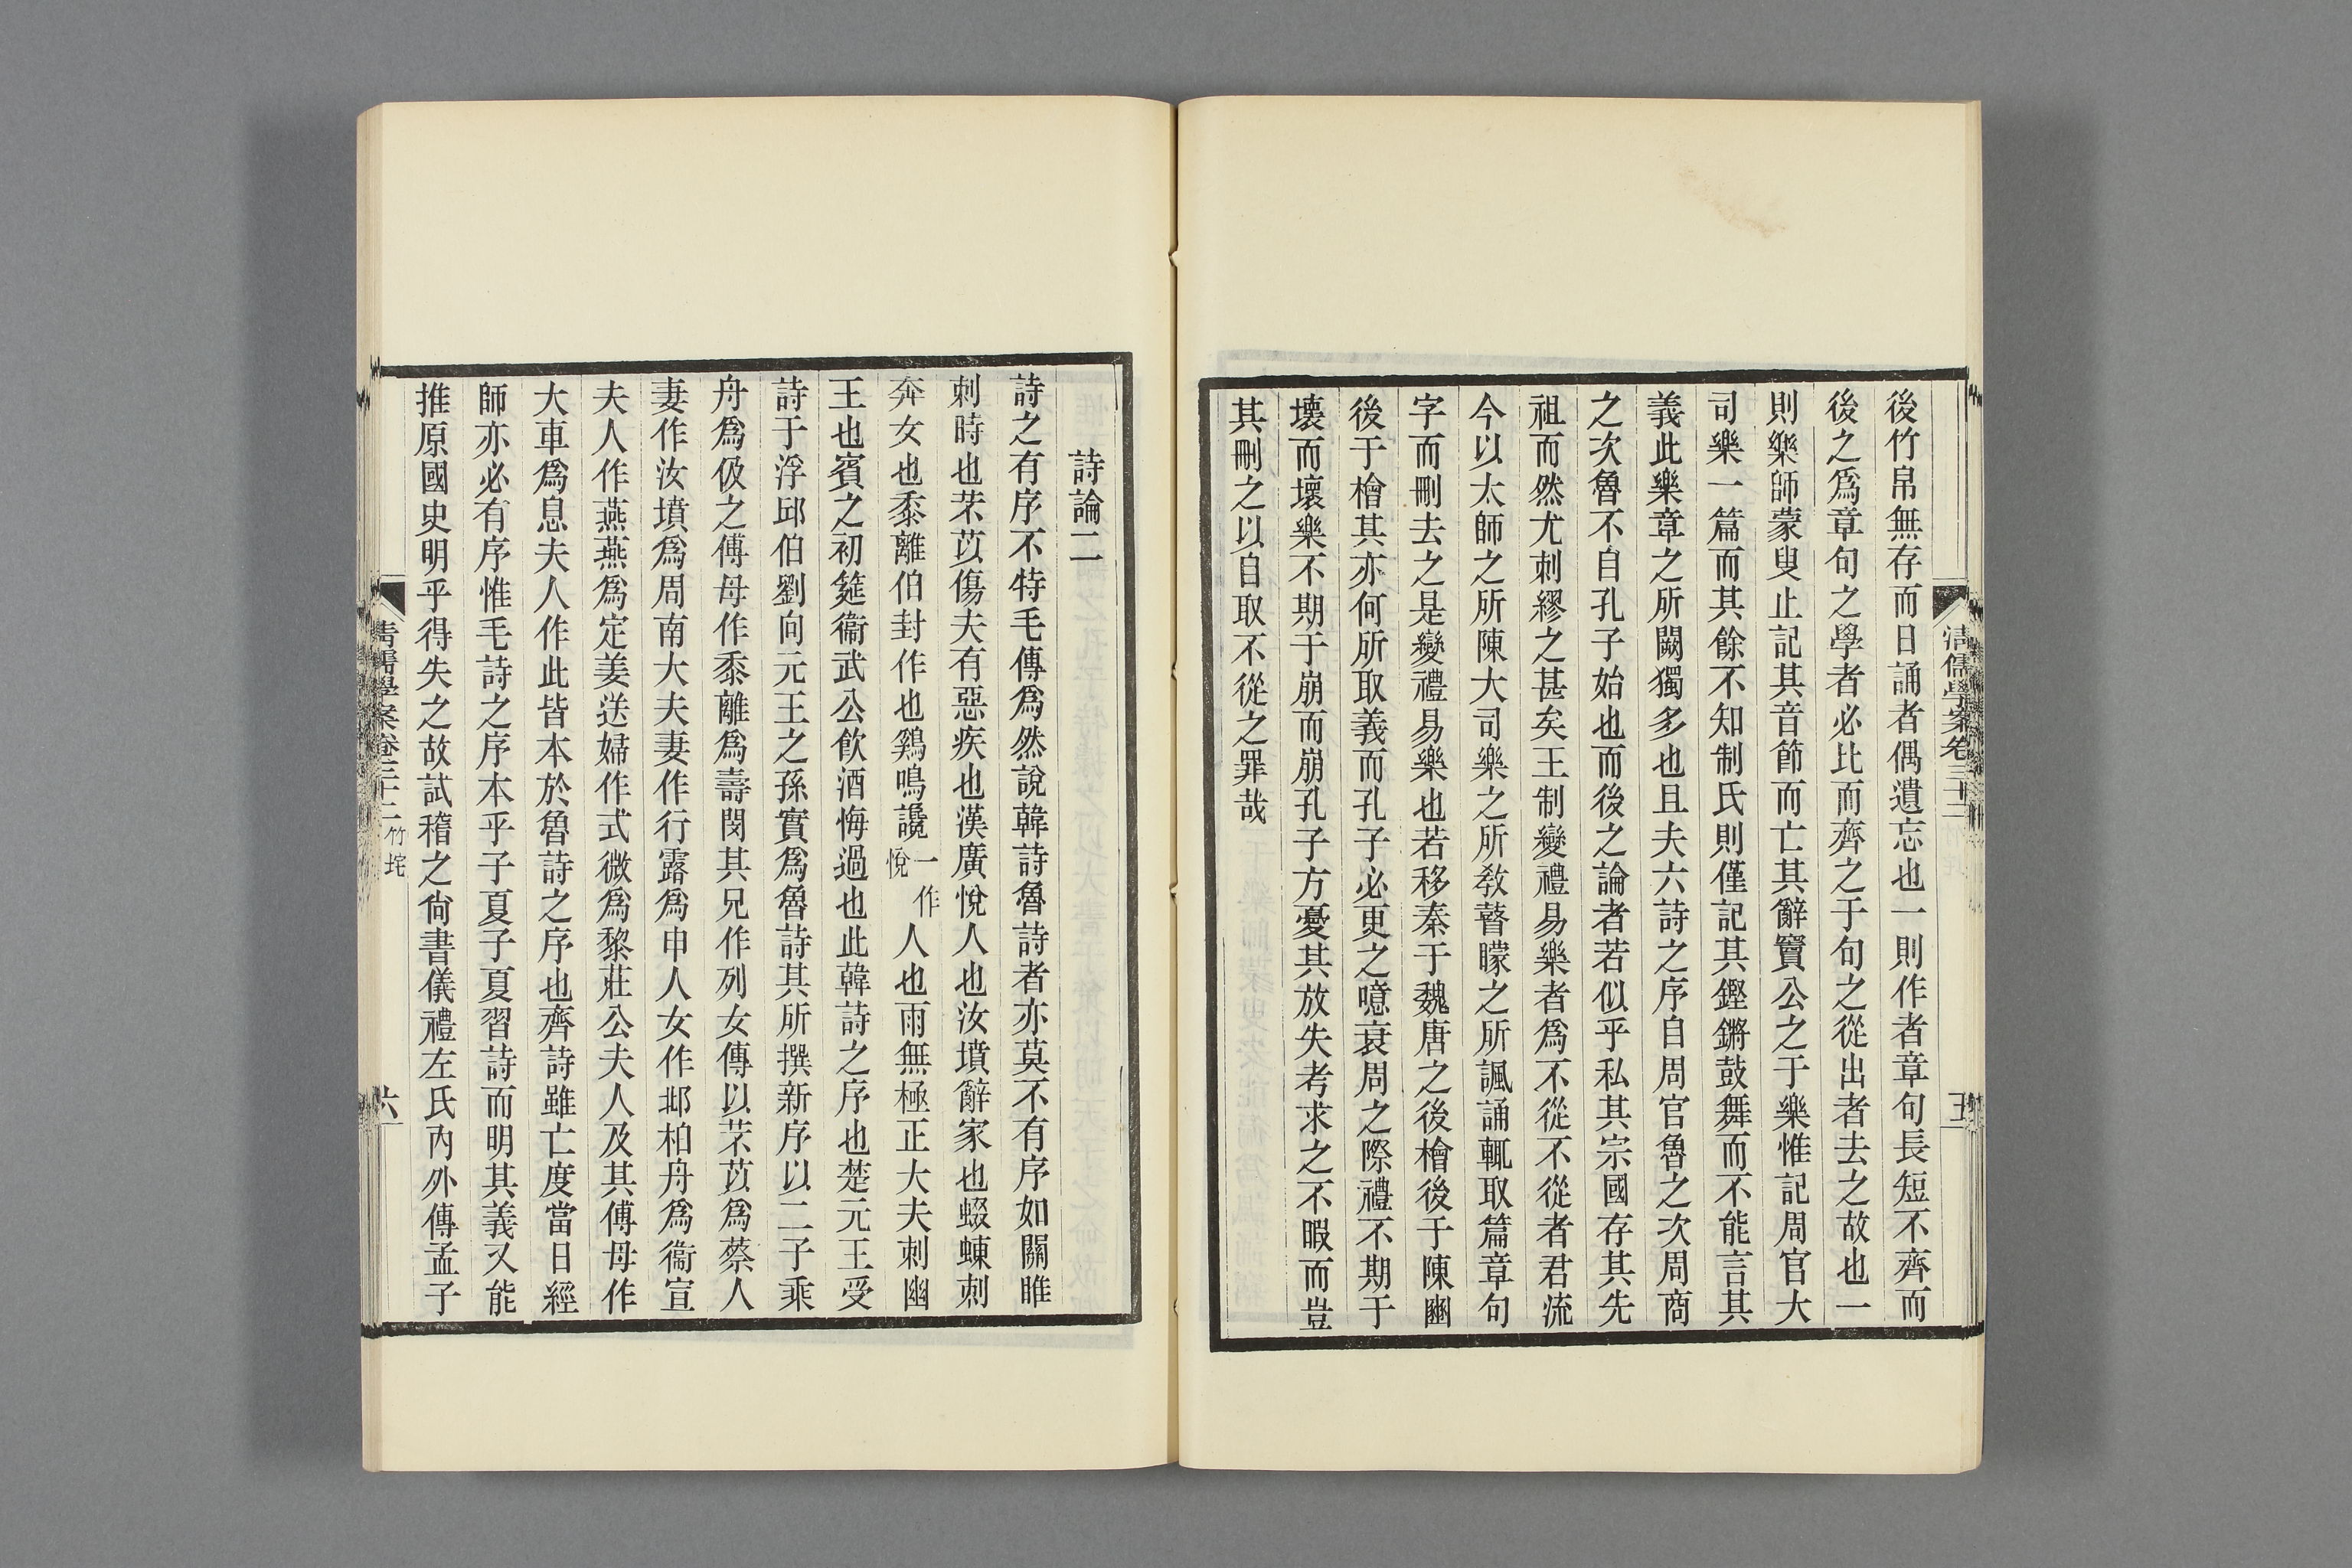 清儒學案卷三十二
五
後竹帛無存而日誦者偶遺忘也一則作者章句長短不齊而
後之爲章句之學者必比而齊之于句之從出者去之故也一
則樂師蒙叟止記其音節而亡其辭竇公之于樂惟記周官大
司樂一篇而其餘不知制氏則僅記其鏗鏘鼓舞而不能言其
義此樂章之所闕獨多也且夫六詩之序自周官魯之次周商
之次魯不自孔子始也而後之論者若似乎私其宗國存其先
祖而然尤刺繆之甚矣王制變禮易樂者爲不從不從者君流
今以太師之所陳大司樂之所敎瞽矇之所諷誦輒取篇章句
字而刪去之是變禮易樂也若移秦于魏唐之後檜後于陳豳
後于檜其亦何所取義而孔子必更之噫衰周之際禮不期于
壞而壞樂不期于崩而崩孔子方憂其放失考求之不暇而豈
其刪之以自取不從之罪哉
詩論二
詩之有序不特毛傳爲然說韓詩魯詩者亦莫不有序如關雎
刺時也芣苡傷夫有惡疾也漢廣悅人也汝墳辭家也蝃蝀刺
奔女也黍離伯封作也鷄鳴讒一作悅人也雨無極正大夫刺幽
王也賓之初筵衞武公飮酒悔過也此韓詩之序也楚元王受
詩于浮邱伯劉向元王之孫實爲魯詩其所撰新序以二子乘
舟爲伋之傅母作黍離爲壽閔其兄作列女傳以芣苡爲蔡人
妻作汝墳爲周南大夫妻作行露爲申人女作邶柏舟爲衞宣
夫人作燕燕爲定姜送婦作式微爲黎莊公夫人及其傅母作
大車爲息夫人作此皆本於魯詩之序也齊詩雖亡度當日經
師亦必有序惟毛詩之序本乎子夏子夏習詩而明其義又能
推原國史明乎得失之故試稽之尙書儀禮左氏內外傳孟子
清儒學案卷三十二 竹垞
六